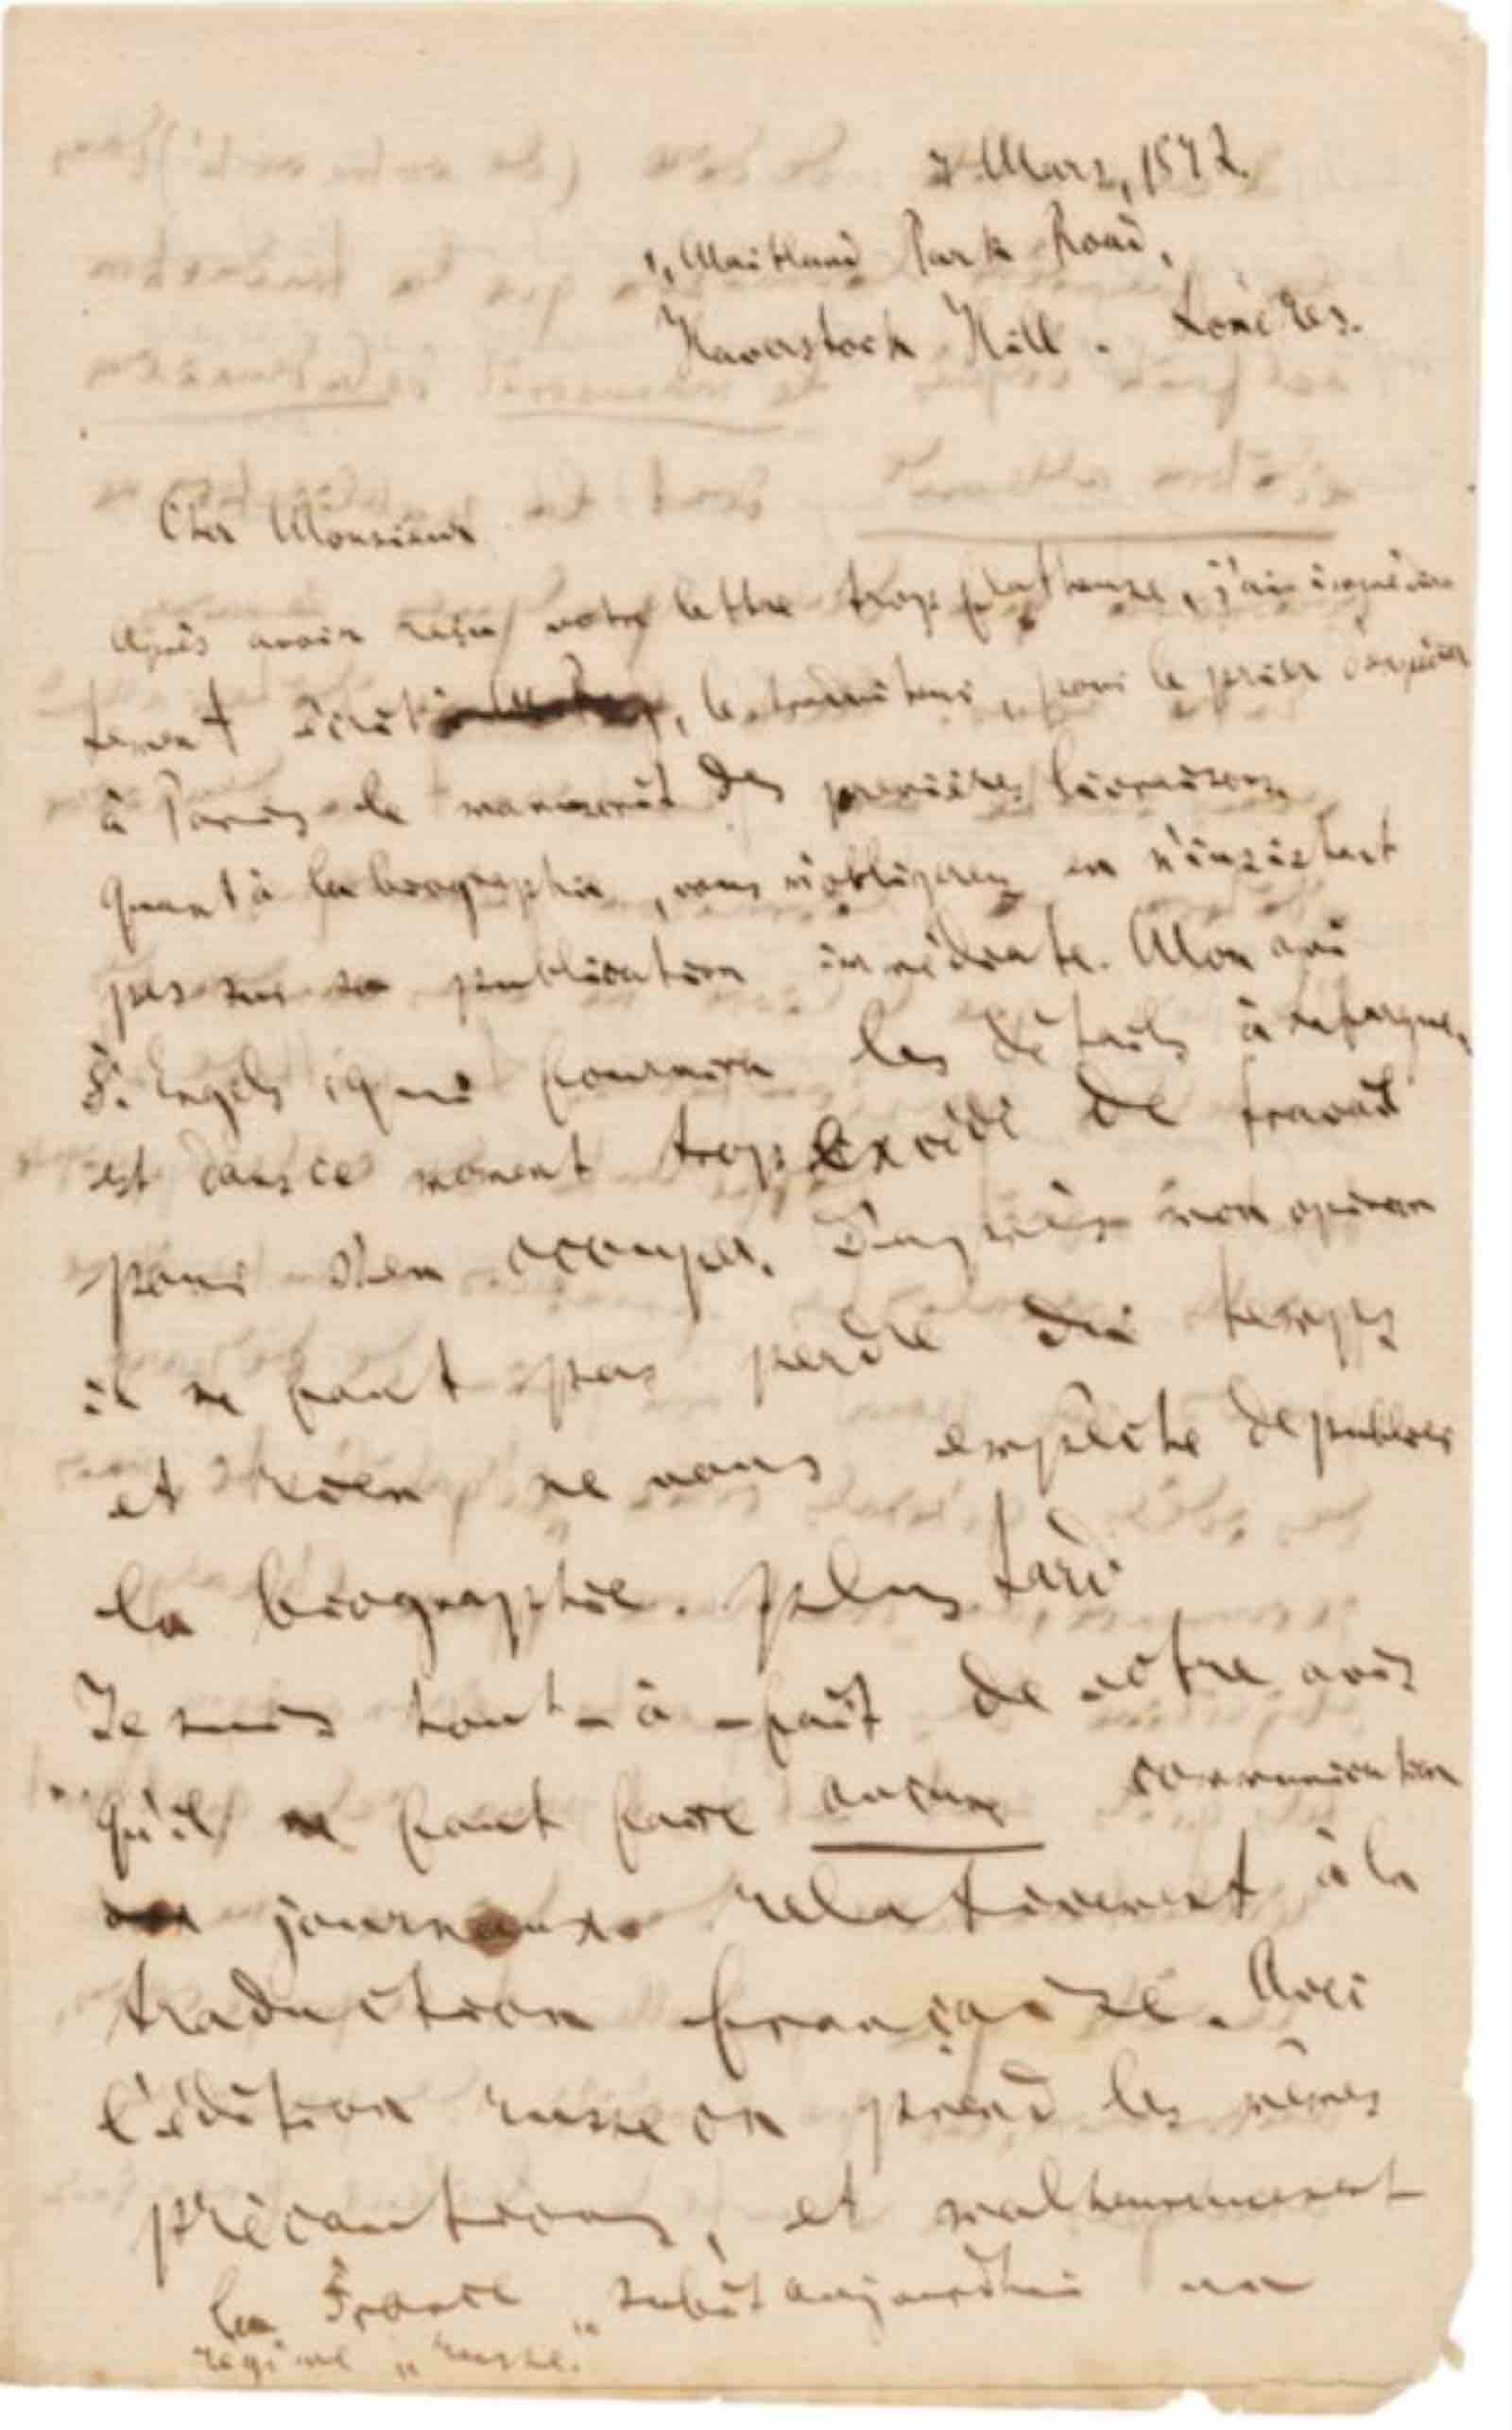 7 Mars, 1872.
1, Maitland Park Road,
Haverstock Hill. Londres.
Cher Monsieur
Après avoir reçu votre lettre trop flatteuse, j'ai immédia-
tement écrit, le traducteur, pour le prier d'expédier
à Paris le manuscrit des premières livraisons
Quant à la biographie, vous m'obligerez en n'insistant
pas sur sa publication immédiate. Mon ami
F. Engels, qui fournira les détails à Lafargue,
est dans ce moment trop excédé de travail
pour s'en occuper. D'après mon opinion
il ne faut pas perdre du temps
et rien ne nous empêche de publier
la biographie plus tard
Je suis tout-à-fait de votre avis
qu'il ne faut faire aucune communication
aux journaux relativement à la
traduction française. Avec
l'édition russe on prend les mêmes
précautions, et malheureusement
la France subit aujourd'hui un
régime „russe."